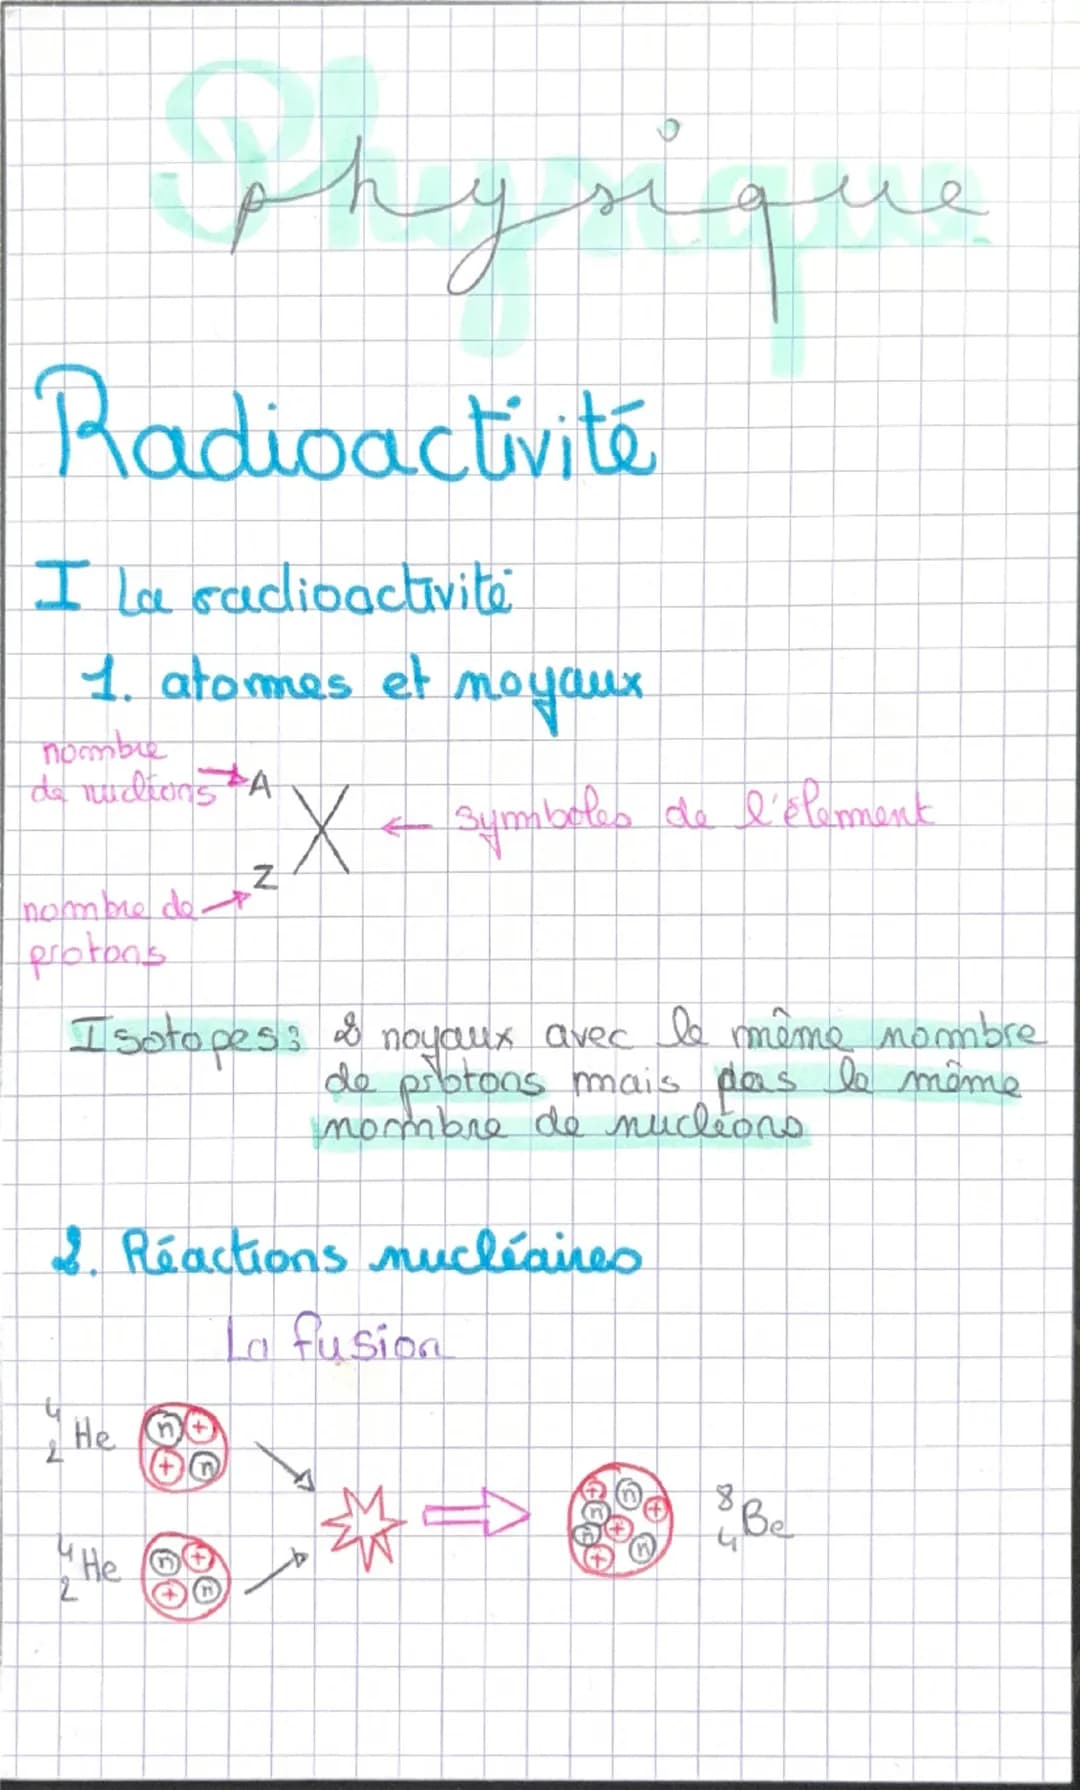 Physique
Radioactivité
I La radioactivité
1. atomes et noyaux
nombre
de nucléons → A
X ← symboles de l'élement
Z
nombre de →
protons
Isotopes : 2 noyaux avec le même nombre
de protons mais pas le même
nombre de nucléons
2. Réactions nucléaires
La fusion
4 2 He n + + n
4 2 He n + + n
+ n n + n + + n 8 4 Be